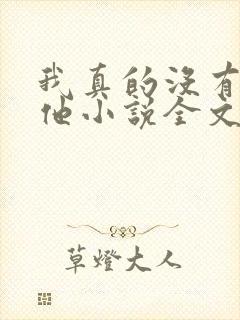 我真的没有
他小说全文
草燈大人